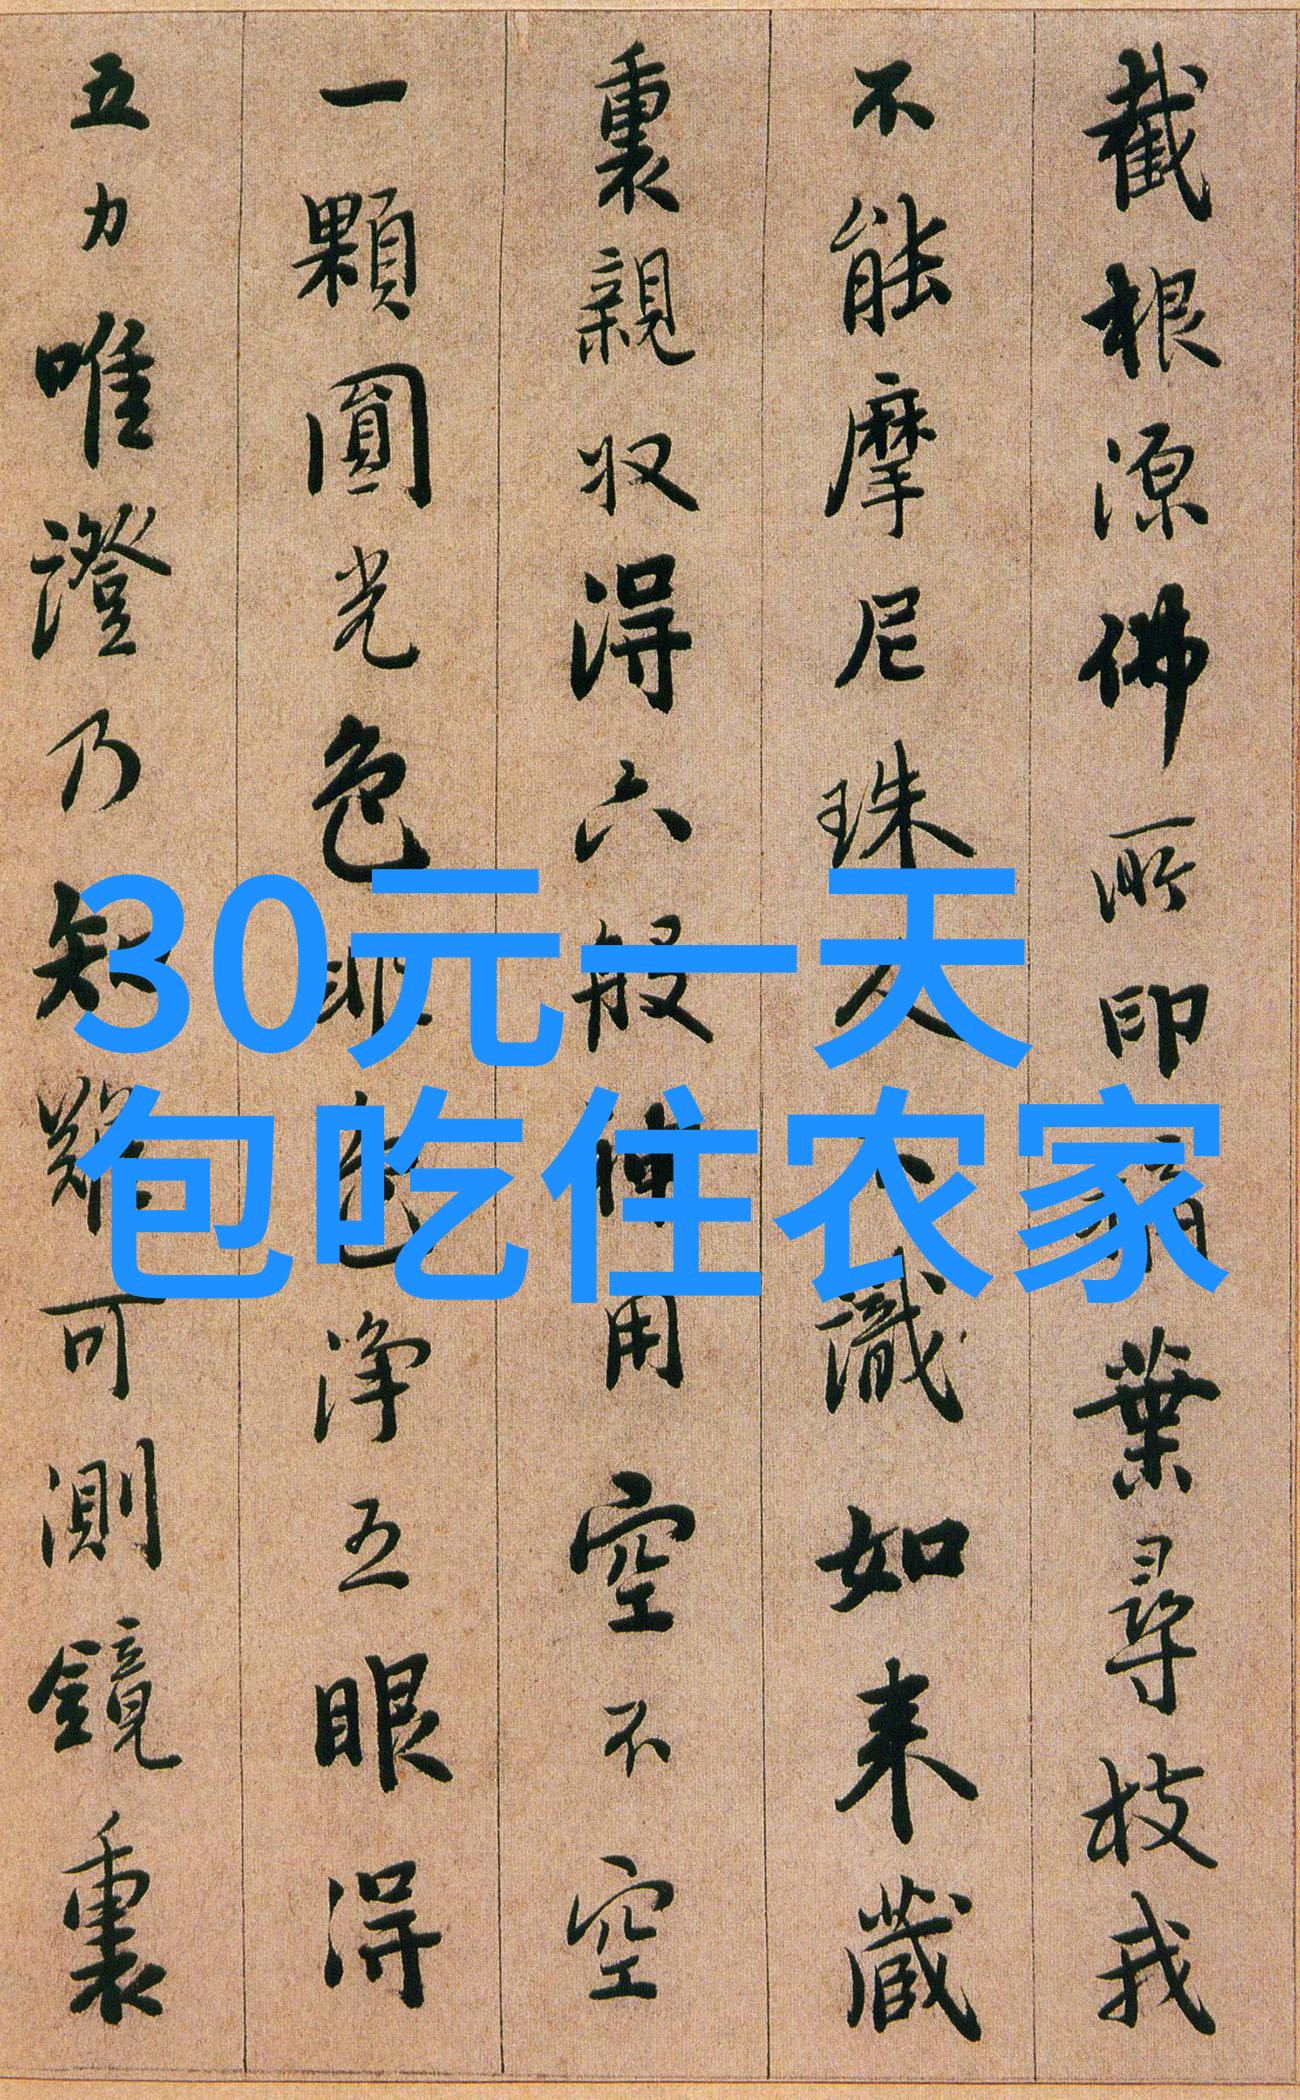 截根源佛所印摘葉尋枝我
不能摩尼珠人不識如来藏
裏親収得六般神用空不空
一顆圓光色非色淨五眼得
五力唯證乃知難可測鏡裏
30元一天
包吃住农家